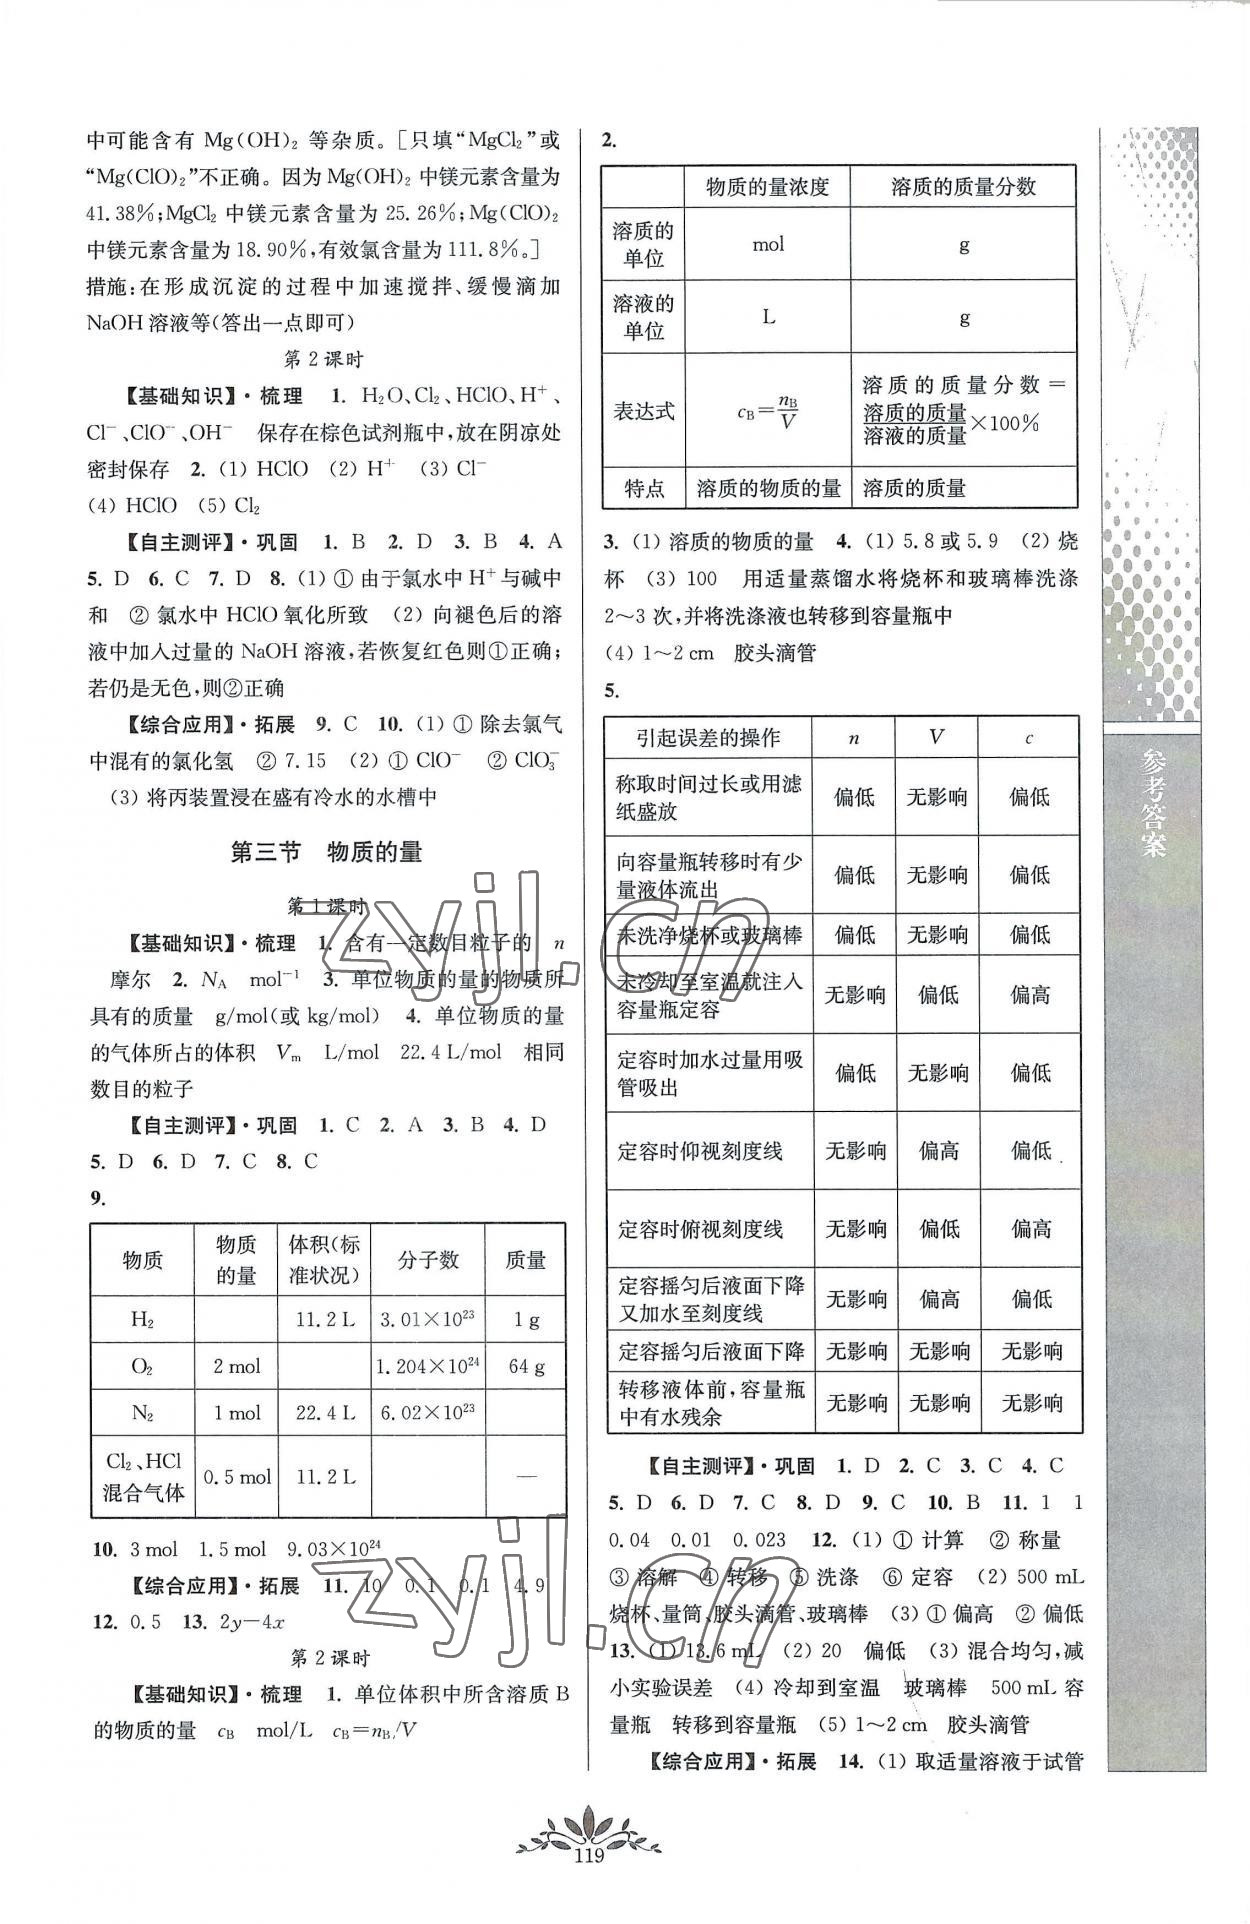 中可能含有 Mg(OH)₂ 等杂质。[只填“MgCl₂”或
“Mg(ClO)₂”不正确。因为 Mg(OH)₂ 中镁元素含量为
41.38%;MgCl₂ 中镁元素含量为 25.26%;Mg(ClO)₂
中镁元素含量为 18.90%,有效氯含量为 111.8%。]
措施:在形成沉淀的过程中加速搅拌、缓慢滴加
NaOH 溶液等(答出一点即可)
第 2 课时
【基础知识】·梳理 1. H₂O、Cl₂、HClO、H⁺、
Cl⁻、ClO⁻、OH⁻ 保存在棕色试剂瓶中,放在阴凉处
密封保存 2. (1) HClO (2) H⁺ (3) Cl⁻
(4) HClO (5) Cl₂
【自主测评】·巩固 1. B 2. D 3. B 4. A
5. D 6. C 7. D 8. (1) ① 由于氯水中 H⁺ 与碱中
和 ② 氯水中 HClO 氧化所致 (2) 向褪色后的溶
液中加入过量的 NaOH 溶液,若恢复红色则①正确;
若仍是无色,则②正确
【综合应用】·拓展 9. C 10. (1) ① 除去氯气
中混有的氯化氢 ② 7.15 (2) ① ClO⁻ ② ClO₃⁻
(3) 将丙装置浸在盛有冷水的水槽中
第三节 物质的量
第 1 课时
【基础知识】·梳理 1. 含有一定数目粒子的 n
摩尔 2. N_A mol⁻¹ 3. 单位物质的量的物质所
具有的质量 g/mol(或 kg/mol) 4. 单位物质的量
的气体所占的体积 Vₘ L/mol 22.4 L/mol 相同
数目的粒子
【自主测评】·巩固 1. C 2. A 3. B 4. D
5. D 6. D 7. C 8. C
9.
物质 物质的量 体积(标准状况) 分子数 质量
H₂ 11.2 L 3.01×10²³ 1 g
O₂ 2 mol 1.204×10²⁴ 64 g
N₂ 1 mol 22.4 L 6.02×10²³
Cl₂、HCl 混合气体 0.5 mol 11.2 L —
10. 3 mol 1.5 mol 9.03×10²⁴
【综合应用】·拓展 11. 10 0.1 0.1 4.9
12. 0.5 13. 2y−4x
第 2 课时
【基础知识】·梳理 1. 单位体积中所含溶质 B
的物质的量 c_B mol/L c_B=n_B/V
2.
物质的量浓度 溶质的质量分数
溶质的单位 mol g
溶液的单位 L g
表达式 c_B=n_B/V 溶质的质量分数=溶质的质量/溶液的质量×100%
特点 溶质的物质的量 溶质的质量
3. (1) 溶质的物质的量 4. (1) 5.8 或 5.9 (2) 烧
杯 (3) 100 用适量蒸馏水将烧杯和玻璃棒洗涤
2～3 次,并将洗涤液也转移到容量瓶中
(4) 1～2 cm 胶头滴管
5.
引起误差的操作 n V c
称取时间过长或用滤纸盛放 偏低 无影响 偏低
向容量瓶转移时有少量液体流出 偏低 无影响 偏低
未洗净烧杯或玻璃棒 偏低 无影响 偏低
未冷却至室温就注入容量瓶定容 无影响 偏低 偏高
定容时加水过量用吸管吸出 偏低 无影响 偏低
定容时仰视刻度线 无影响 偏高 偏低
定容时俯视刻度线 无影响 偏低 偏高
定容摇匀后液面下降又加水至刻度线 无影响 偏高 偏低
定容摇匀后液面下降 无影响 无影响 无影响
转移液体前,容量瓶中有水残余 无影响 无影响 无影响
【自主测评】·巩固 1. D 2. C 3. C 4. C
5. D 6. D 7. C 8. D 9. C 10. B 11. 1 1
0.04 0.01 0.023 12. (1) ① 计算 ② 称量
③ 溶解 ④ 转移 ⑤ 洗涤 ⑥ 定容 (2) 500 mL
烧杯、量筒、胶头滴管、玻璃棒 (3) ① 偏高 ② 偏低
13. (1) 13.6 mL (2) 20 偏低 (3) 混合均匀,减
小实验误差 (4) 冷却到室温 玻璃棒 500 mL 容
量瓶 转移到容量瓶 (5) 1～2 cm 胶头滴管
【综合应用】·拓展 14. (1) 取适量溶液于试管
参考答案
zyjl.cn
zyjl.cn
119